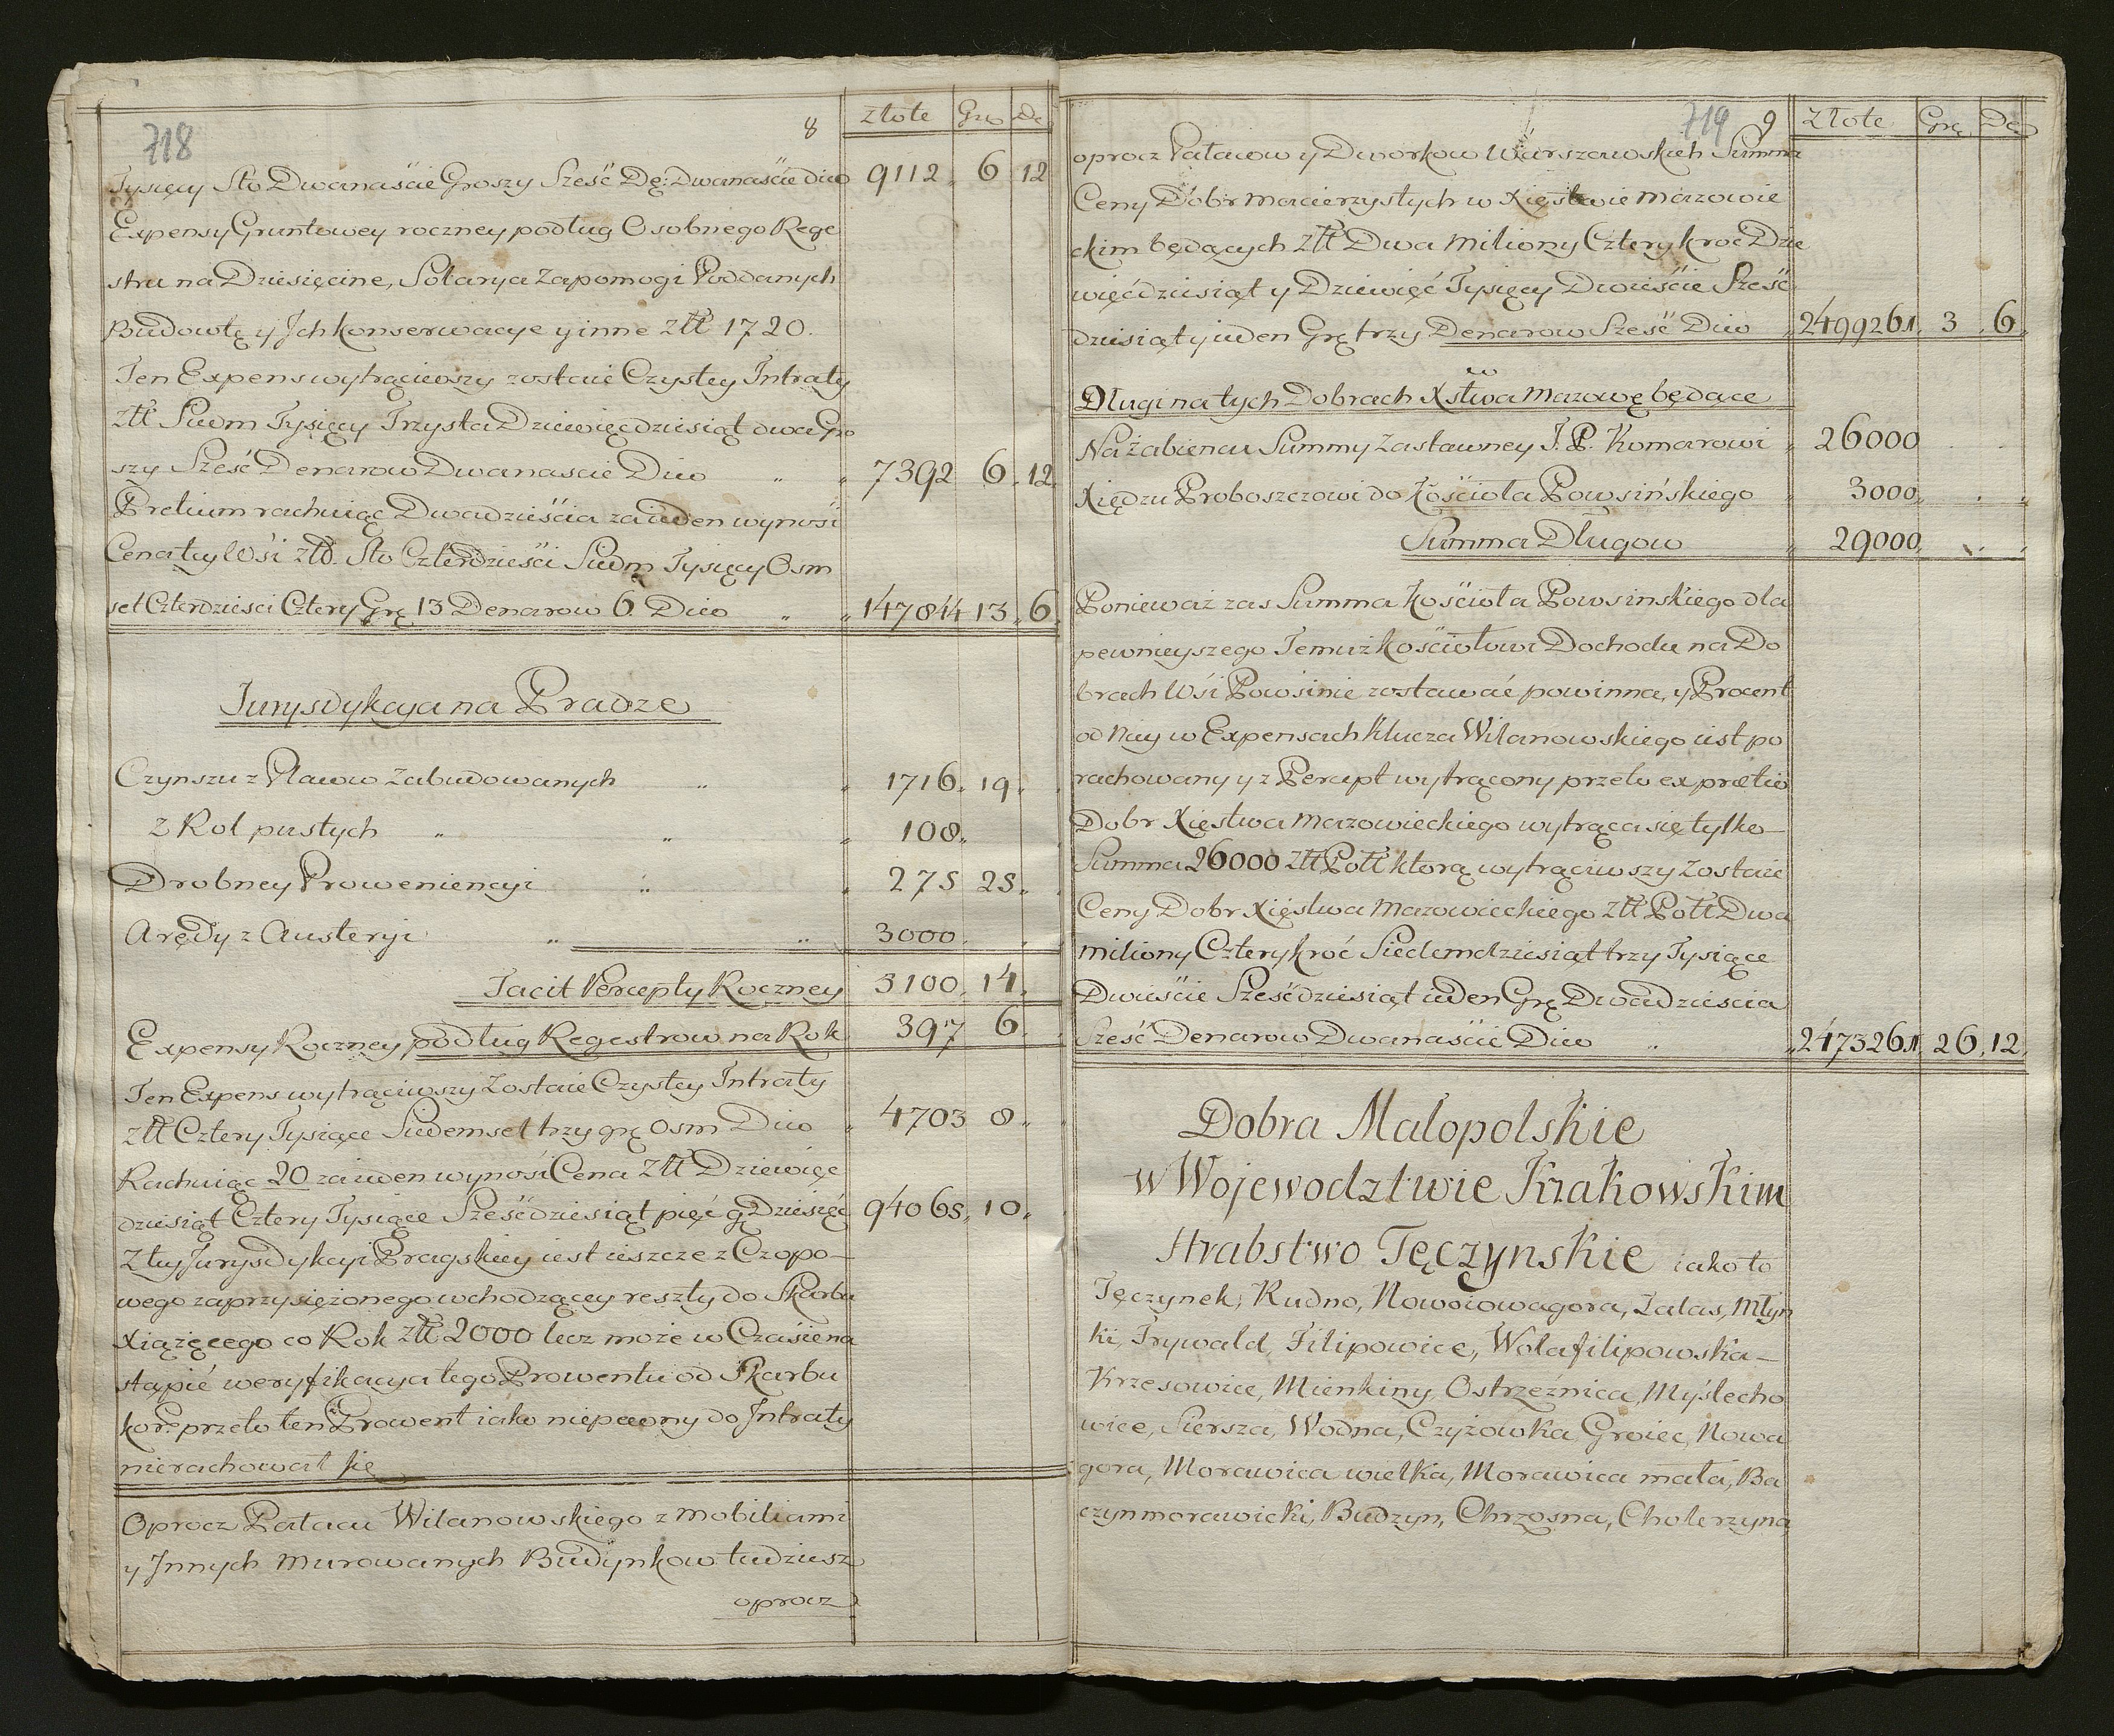 718 8 Złote Gro De
Tysięcy Sto Dwanaście Groszy Sześć De: Dwanaście dico 9112 6 12
Expensy Gruntowey roczney podług Osobnego Rege
stru na Dziesięcine, Solarya Zapomogi Poddanych
Budowlę y Jch konserwacye y inne złł 1720.
Ten Expens wytrąciwszy zostaie Czystey Intraty
złł Siedm Tysięcy Trzysta Dziewięcdziesiąt dwa Gro
szy Sześć Denarow Dwanascie Dico " " 7392 6 12
Pretium rachuiąc Dwadzieścia za ieden wynosi
Cena tey Wśi złł. Sto Czterdzieści Siedm Tysięcy Osm
set Czterdziesci Cztery Grę 13 Denarow 6 Dico " " 147844 13 6
Jurysdykcya na Pradze
Czynszu z Placow Zabudowanych " " 1716 19
z Rol pustych " " " 108
Drobney Prowenięncyi " " 275 25
Arędy z Austeryi " " 3000
Facit Percepty Roczney 3100 14
Expensy Roczney podług Regestrow na Rok 397 6
Ten Expens wytrąciwszy Zostaie Czystey Intraty
złł Cztery Tysiące Siedemset trzy grę Osm Dico " 4703 8
Rachuiąc 20 za ieden wynośi Cena Złł Dziewięc
dziesiąt Cztery Tysiące Sześćdziesiąt pięć gę Dziesięć 94065 10
Z tey Jurysdykcyi Pragskiey iest ieszcze z Czopo-
wego zaprzysiężonego wchodzącey reszty do Skarbu
Xiążęcego co Rok złł 2000 lecz może w Czasie na
stąpić weryfikacya tego Prowentu od Skarbu
kor: przeto ten Prowent iako niepewny do Intraty
nierachował się
Oprocz Pałacu Wilanowskiego z mobiliami
y Innych murowanych Budynkow tudziesz
oprocz
719 9 Złote Grę De
oprocz Pałacow y Dworkow Warszawskich Summa
Ceny Dóbr macierzystych w Xięstwie mazowie
ckim będących złł Dwa miliony Czterykroć Dzie
więćdziesiąt y Dziewięć Tysięcy Dwieście Sześć
dziesiąt y ieden Grę trzy Denarow Sześć Dico " 2499261 3 6
Długi na tych Dobrach Xstwa Mazowę będące
Na Zabiencu Summy Zastawney J.P. Komarowi " 26000
Xiędzu Proboszczowi do Kościoła Powsińskiego " 3000
Summa Długow " 29000
Ponieważ zas Summa Kościoła Powsinskiego dla
pewnieyszego Temuż Kościołowi Dochodu na Do
brach Wśi Powsinie zostawać powinna, y Procent
od Niey w Expensach Klucza Wilanowskiego iest po
rachowany y z Percept wytrącony przeto ex prætio
Dobr Xięstwa Mazowieckiego wytrąca się tylko-
Summa 26000 złł Połł ktorą wytrąciwszy Zostaie
Ceny Dobr Xięstwa Mazowieckiego złł Połł Dwa
miliony Czterykroć Siedemdziesiąt trzy Tysiące
Dwieście Sześćdziesiąt ieden Grę Dwadzieścia
Sześć Denarow Dwanaście Dico " " 2473261 26 12
Dobra Małopolskie
w Wojewodztwie Krakowskim
Hrabstwo Tęczynskie iako to
Tęczynek, Rudno, Nowoiowagora, Zalas, Młyn
ki, Frywald, Filipowice, Wolafilipowska-
Krzesowice, Mienkiny, Ostrzeźnica, Myślecho
wice, Siersza, Wodna, Czyżowka, Groiec, Nowa
gora, Morawica wielka, Morawica mała, Ba
czynmorawicki, Budzyn, Chrzosna, Cholerzyna